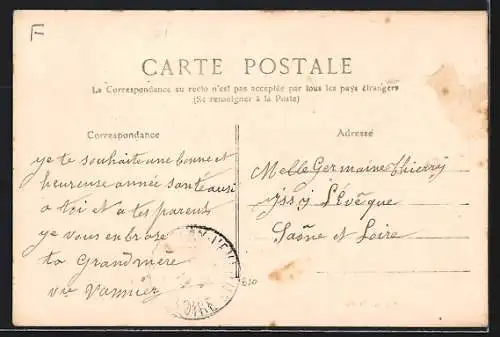 F
CARTE POSTALE
La Correspondance au recto n'est pas acceptée par tous les pays étrangers
(Se renseigner à la Poste)
Correspondance
Adresse
ye te souhaite une bonne et
heureuse année sante ausi
a toi et a tes parents
ye vous enbrase
ta Grand mere
vve Vannier
Melle Germaine thierry
Jssy L'évêque
Saône et Loire